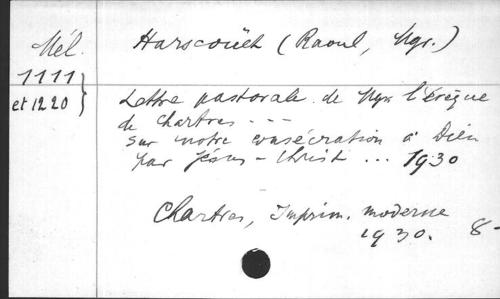 Mél.
1111
et 1220
Harscouët (Raoul, Mgr.)
Lettre pastorale de Mgr l'évêque
de Chartres ---
sur notre consécration à Dieu
par Jésus-Christ ... 1930
Chartres, Imprim. moderne
1930. 8-